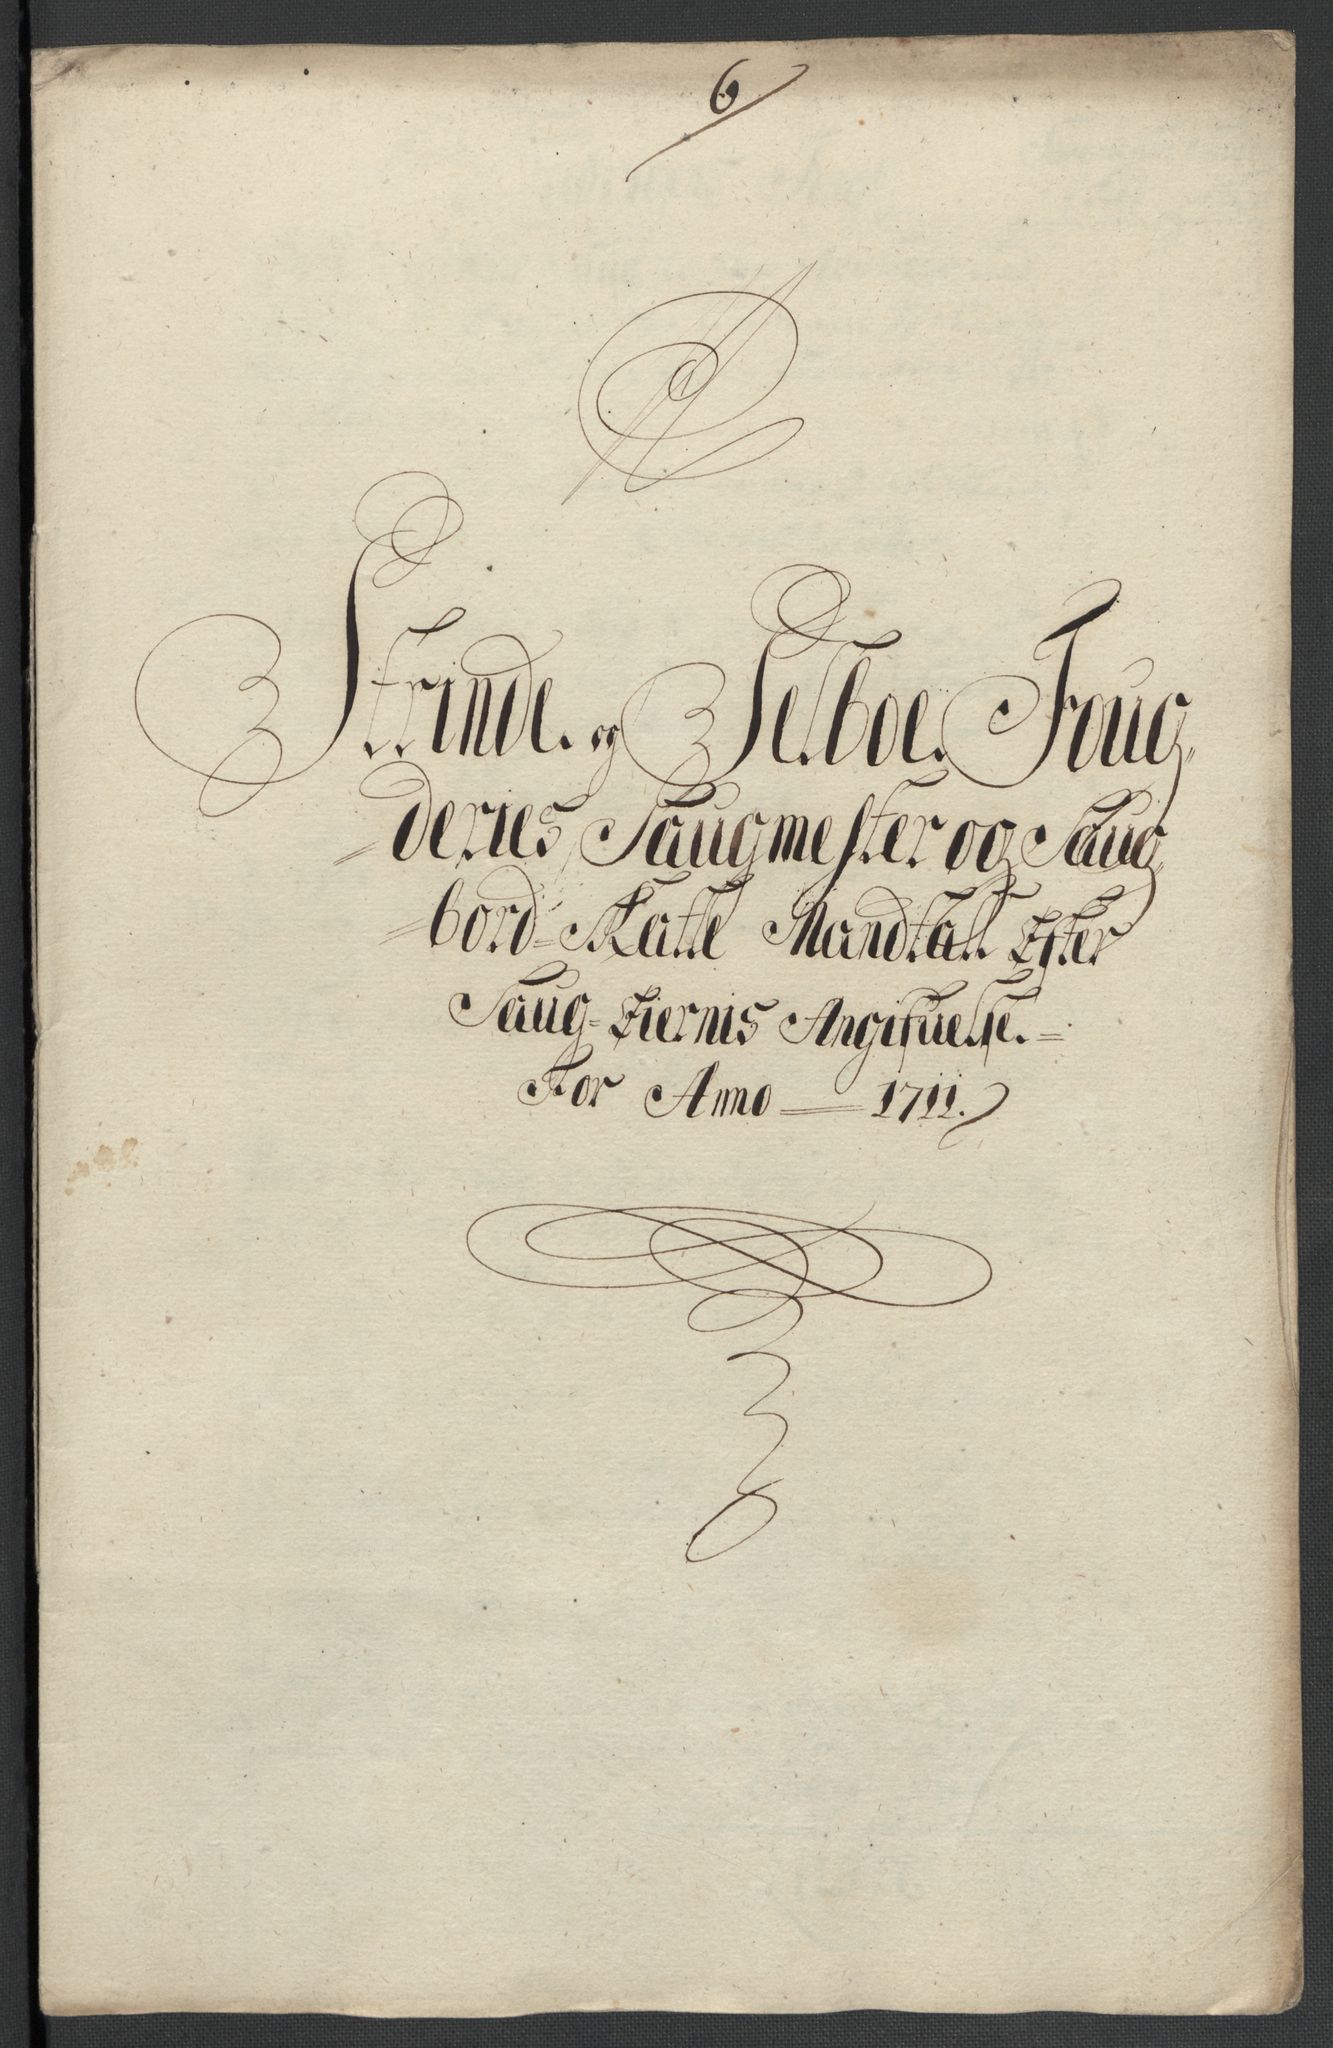 6
Strinde og Selboe Foug=
=deries Saugmester og Saug
=bord=Skatte Mandtall Efter
Saug=Eiernis Angifuelse.=
For Anno — 1711.